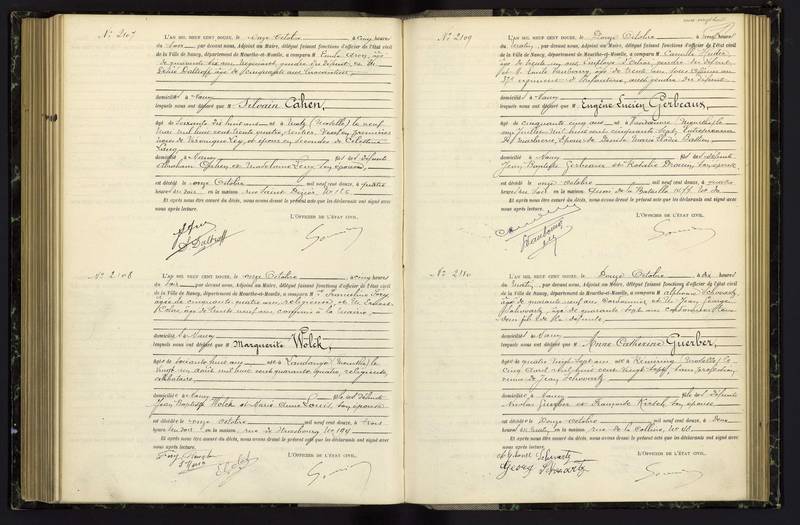 N° 2107
L'AN MIL NEUF CENT DOUZE, le onze Octobre à cinq heures
du soir, par devant nous, Adjoint au Maire, délégué faisant fonctions d'officier de l'état civil
de la Ville de Nancy, département de Meurthe-et-Moselle, a comparu M Emile
de quarante six ans négociant, gendre du défunt, et M
Dalbroff âgé de
domicilié à Nancy
lesquels nous ont déclaré que M Selvain Cahen,
âgé de soixante dix huit ans né à Metz (Moselle) le neuf
mai mil huit cent trente quatre, rentier, Veuf en premières
noces de Véronique Lévy, et époux en secondes de Célestine
Lévy
domicilié à Nancy fils de défunts
Abraham Cahen et Madelaine Lévy, son épouse,
est décédé le onze Octobre mil neuf cent douze, à quatre
heures du soir en la maison rue Saint Dizier N° 126
Et après nous être assuré du décès, nous avons dressé le présent acte que les déclarants ont signé avec
nous après lecture.
L'OFFICIER DE L'ÉTAT CIVIL,
N° 2108
L'AN MIL NEUF CENT DOUZE, le onze Octobre à cinq heures
du soir, par devant nous, Adjoint au Maire, délégué faisant fonctions d'officier de l'état civil
de la Ville de Nancy, département de Meurthe-et-Moselle, a comparu M
âgée de cinquante quatre ans, religieuse et M
âgé de trente neuf ans, employé à la mairie
domiciliés à Nancy
lesquels nous ont déclaré que M Marguerite Wölck,
âgée de soixante huit ans née à Landange (Meurthe) le
vingt un août mil huit cent quarante quatre, religieuse,
célibataire
domiciliée à Nancy fille de défunts
Jean Baptiste Wölck et Marie Anne Louis, son épouse
est décédée le onze Octobre mil neuf cent douze, à trois
heures du soir en la maison rue de Strasbourg N° 194
Et après nous être assuré du décès, nous avons dressé le présent acte que les déclarants ont signé avec
nous après lecture.
L'OFFICIER DE L'ÉTAT CIVIL,
N° 2109
L'AN MIL NEUF CENT DOUZE, le Douze Octobre à heures
du matin, par devant nous, Adjoint au Maire, délégué faisant fonctions d'officier de l'état civil
de la Ville de Nancy, département de Meurthe-et-Moselle, a comparu M Camille
âgé de trente un ans employé gendre du défunt
et M Emile Vaubourg, âgé de trente ans, sous officier au
régiment d'Infanterie, aussi gendre du défunt
domiciliés à Nancy
lesquels nous ont déclaré que M Eugène Lucien Gerbeaux,
âgé de cinquante cinq ans né à Vandoeuvre (Meurthe) le
onze juillet mil huit cent cinquante sept, Entrepreneur
de marbrerie, Époux de Marie
domicilié à Nancy fils de défunts
Jean Baptiste Gerbeaux et Rosalie Drouin, son épouse
est décédé le onze octobre mil neuf cent douze, à quatre
heures du soir en la maison Quai de la Bataille N°
Et après nous être assuré du décès, nous avons dressé le présent acte que les déclarants ont signé avec
nous après lecture.
L'OFFICIER DE L'ÉTAT CIVIL,
Vaubourg
N° 2110
L'AN MIL NEUF CENT DOUZE, le Douze Octobre à dix heures
du matin, par devant nous, Adjoint au Maire, délégué faisant fonctions d'officier de l'état civil
de la Ville de Nancy, département de Meurthe-et-Moselle, a comparu M Alphonse Schwartz,
âgé de quarante neuf ans cordonnier et M Jean George
Schwartz, âgé de quarante sept ans cordonnier, tous
deux fils de la défunte
domiciliés à Nancy
lesquels nous ont déclaré que M Anne Catherine Guerber,
âgée de quatre vingt sept ans née à Rémering (Moselle) le
cinq avril mil huit cent vingt cinq, sans profession,
veuve de Jean Schwartz
domiciliée à Nancy fille de défunts
Nicolas Guerber et Françoise Kirsch, son épouse
est décédée le Douze Octobre mil neuf cent douze, à deux
heures du matin en la maison rue de la Colline, N° 40
Et après nous être assuré du décès, nous avons dressé le présent acte que les déclarants ont signé avec
nous après lecture.
L'OFFICIER DE L'ÉTAT CIVIL,
Alphonse Schwartz
Georg Schwartz